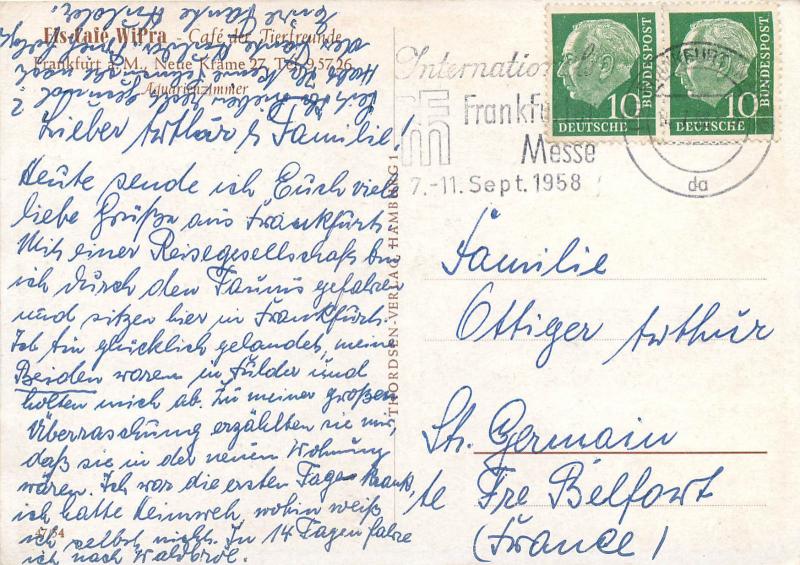 Eis-Café WiPra - Café der Tierfreunde
Frankfurt a. M., Neue Kräme 27, Tel. 9 57 26
Aquarienzimmer
Lieber Arthur & Familie!
Heute sende ich Euch viel
liebe Grüße aus Frankfurt.
Mit einer Reisegesellschaft bin
ich durch den Taunus gefahren
und sitzen hier in Frankfurt.
Ich bin glücklich gelandet, meine
Beiden waren in Fulda und
holten mich ab. Zu meiner großen
Überraschung erzählten sie mir,
daß sie in der neuen Wohnung
wären. Ich war die ersten Tage krank,
ich hatte Heimweh, wohin weiß
ich selbst nicht. In 14 Tagen fahre
ich nach Waldbröl.
Eure Tante
47/54
THORDSEN-VERLAG, HAMBURG 1
Internation
Frankfu
Messe
7.-11. Sept. 1958
10
DEUTSCHE
BUNDESPOST
10
DEUTSCHE
BUNDESPOST
da
Familie
Ottiger Arthur
St. Germain
te Fre Belfort
(France)